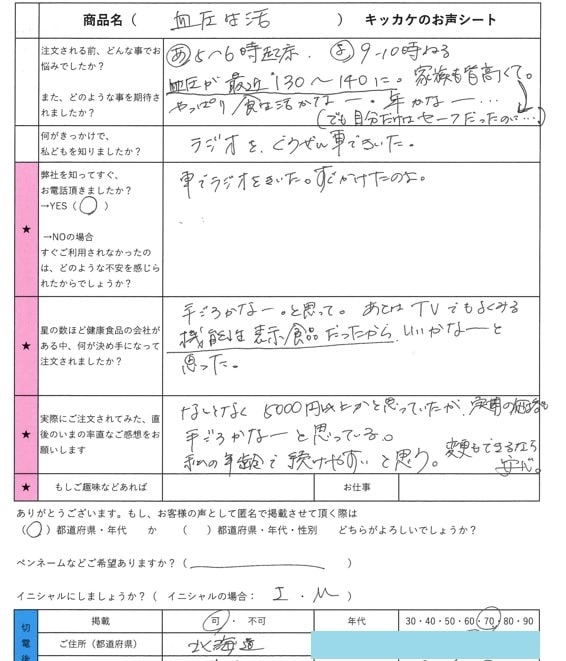 商品名（ 血圧は活 ） キッカケのお声シート
注文される前、どんな事でお
悩みでしたか？
また、どのような事を期待さ
れましたか？
あ 5〜6時起床. よ 9-10時ねる
血圧が最近130〜140に。家族も皆高くて。
やっぱり食生活かなー・年かなー…
(でも自分だけはセーフだったのに…)
何がきっかけで、
私どもを知りましたか？
ラジオを、ぐうぜん車できいた。
★
弊社を知ってすぐ、
お電話頂きましたか？
→YES（ ○ ）
→NOの場合
すぐご利用されなかったの
は、どのような不安を感じら
れたからでしょうか？
車でラジオをきいた。すぐかけたのよ。
★
星の数ほど健康食品の会社が
ある中、何が決め手になって
注文されましたか？
手ごろかなー。と思って。あとは TVでもよくみる
機能性表示食品だったから、いいかなーと
思った。
★
実際にご注文されてみた、直
後のいまの率直なご感想をお
願いします
なんとなく 5000円以上かと思っていたが、実際の価格も
手ごろかなーと思っている。
私の年齢で続けやすいと思う。変更もできるなら
安心。
★ もしご趣味などあれば お仕事
ありがとうございます。もし、お客様の声として匿名で掲載させて頂く際は
（○）都道府県・年代 か （ ）都道府県・年代・性別 どちらがよろしいでしょうか？
ペンネームなどご希望ありますか？（ ）
イニシャルにしましょうか？（ イニシャルの場合： I . M ）
切
電
後
掲載 可 ・ 不可 年代 30・40・50・60・70・80・90
ご住所（都道府県） 北海道